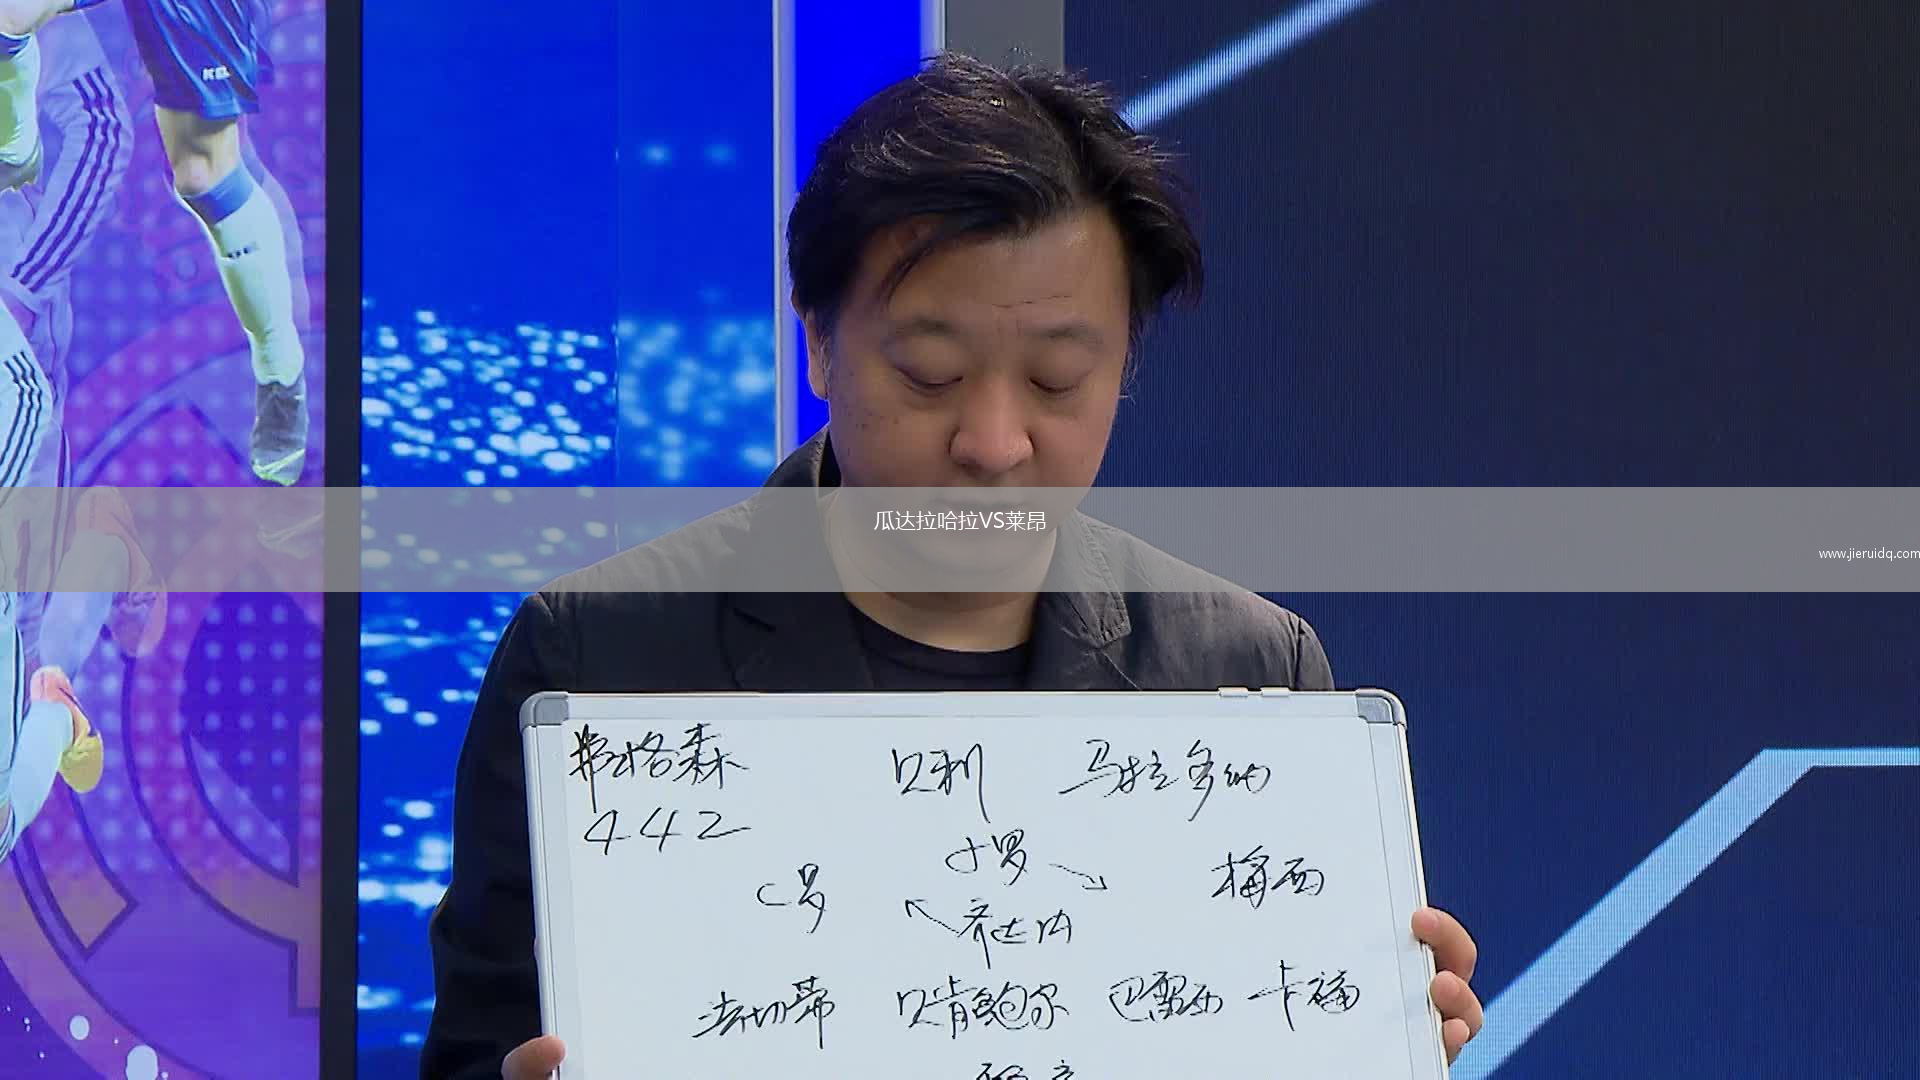 KEL
瓜达拉哈拉VS莱昂
www.jieruidq.com
弗格森 贝利 马拉多纳
442
小罗
C罗 梅西
齐达内
法切蒂 贝肯鲍尔 巴雷西 卡福